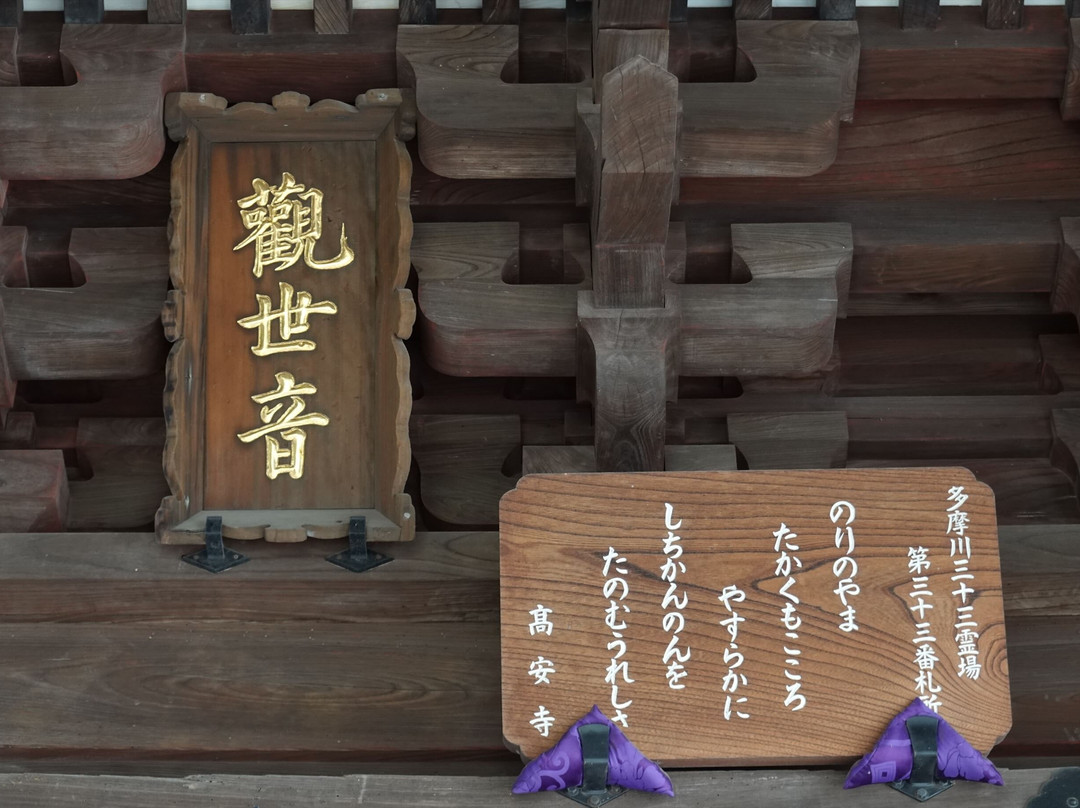 觀世音
多摩川三十三霊場
第三十三番札所
のりのやま
たかくもこころ
やすらかに
しちかんのんを
たのむうれしさ
髙安寺